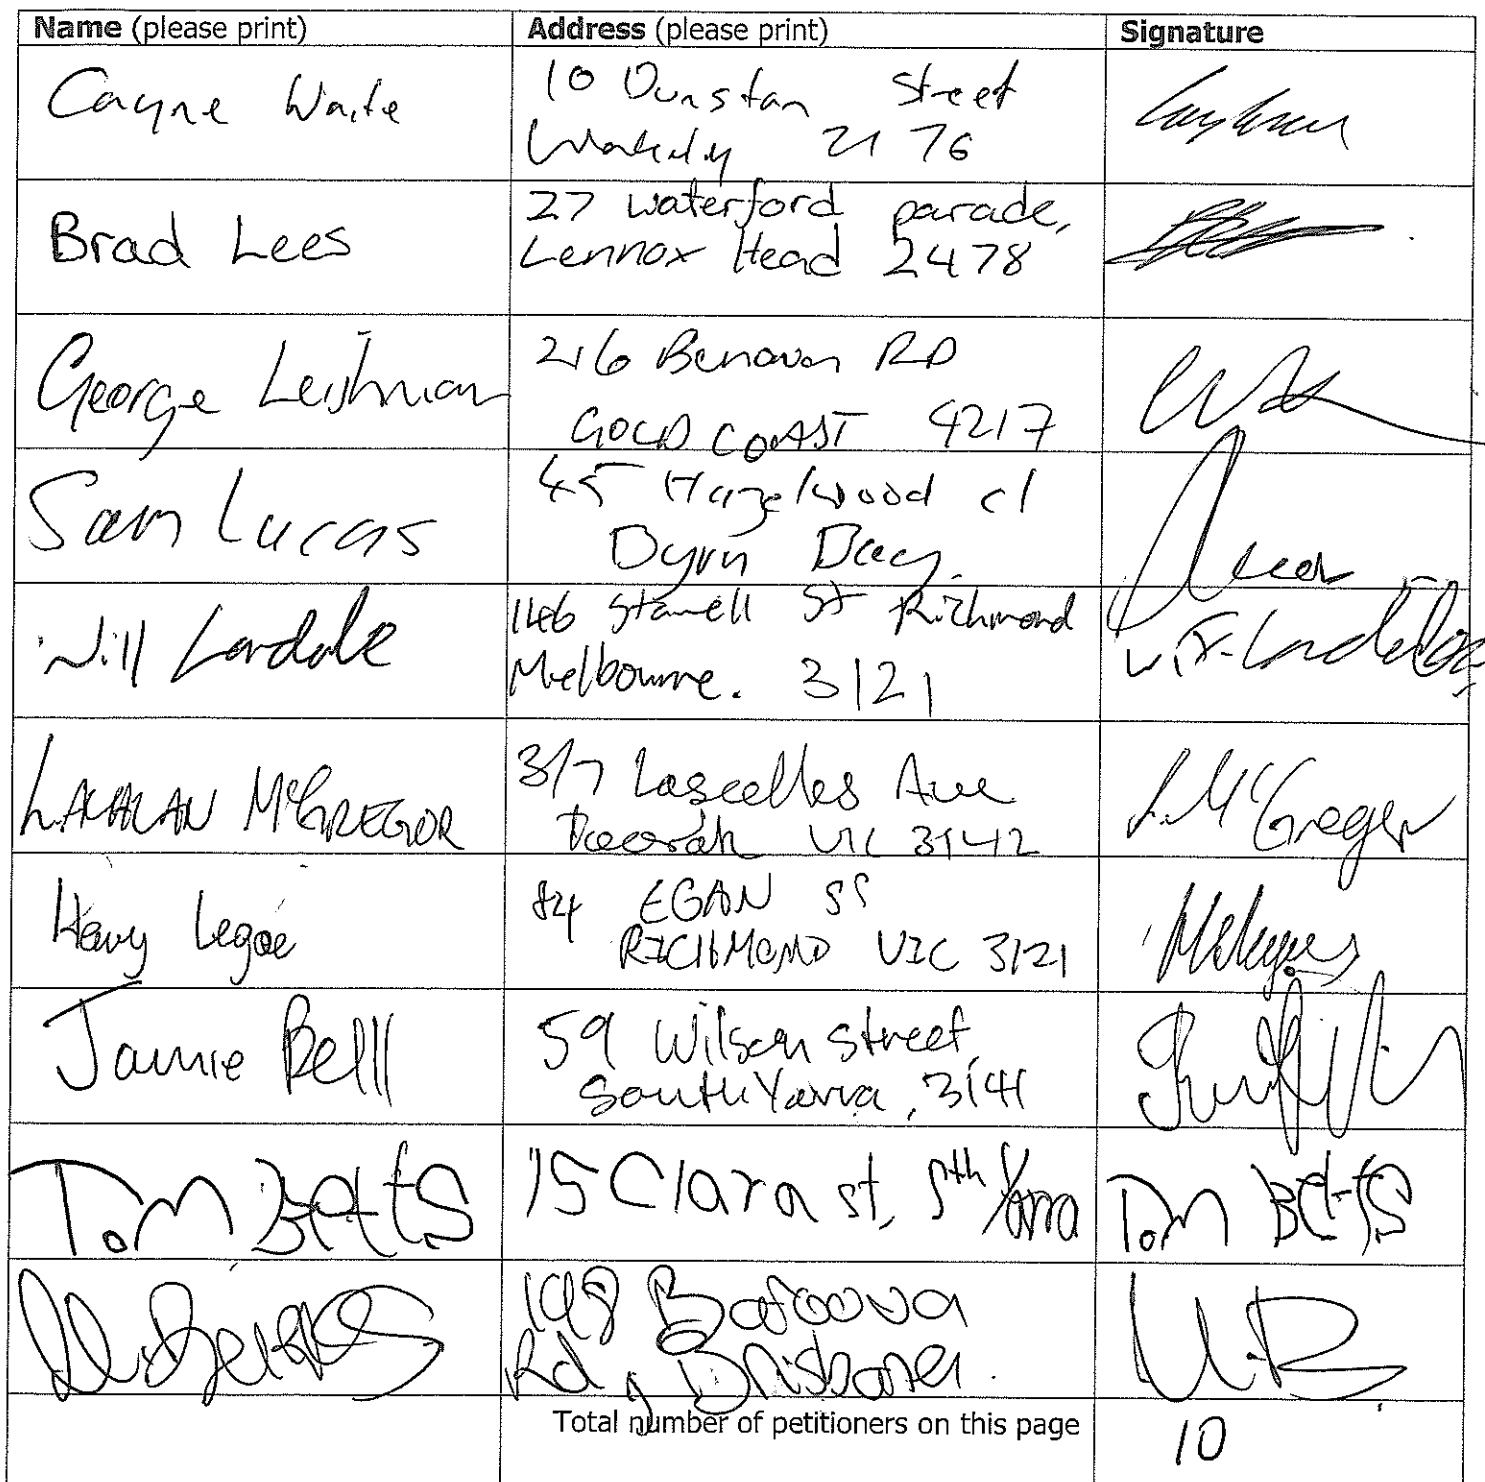 Name (please print) Address (please print) Signature
Cayne Waite
10 Dunstan Street
Wakely 2176
Brad Lees
27 waterford parade,
Lennox Head 2478
George Leishman
216 RD
GOLD COAST 4217
Sam Lucas
45 Hazelwood cl
Byrn Bay.
Will Lansdale
146 Stawell St Richmond
Melbourne. 3121
LACHLAN McGREGOR
3/7 Lascelles Ave
Toorak VIC 3142
L. McGregor
Harry Legoe
84 EGAN ST
RICHMOND VIC 3121
Jamie Bell
59 Wilson Street,
South Yarra, 3141
Tom Betts
15 Clara st, Sth Yarra
Tom Betts
198
Rd, Brisbane.
Total number of petitioners on this page
10